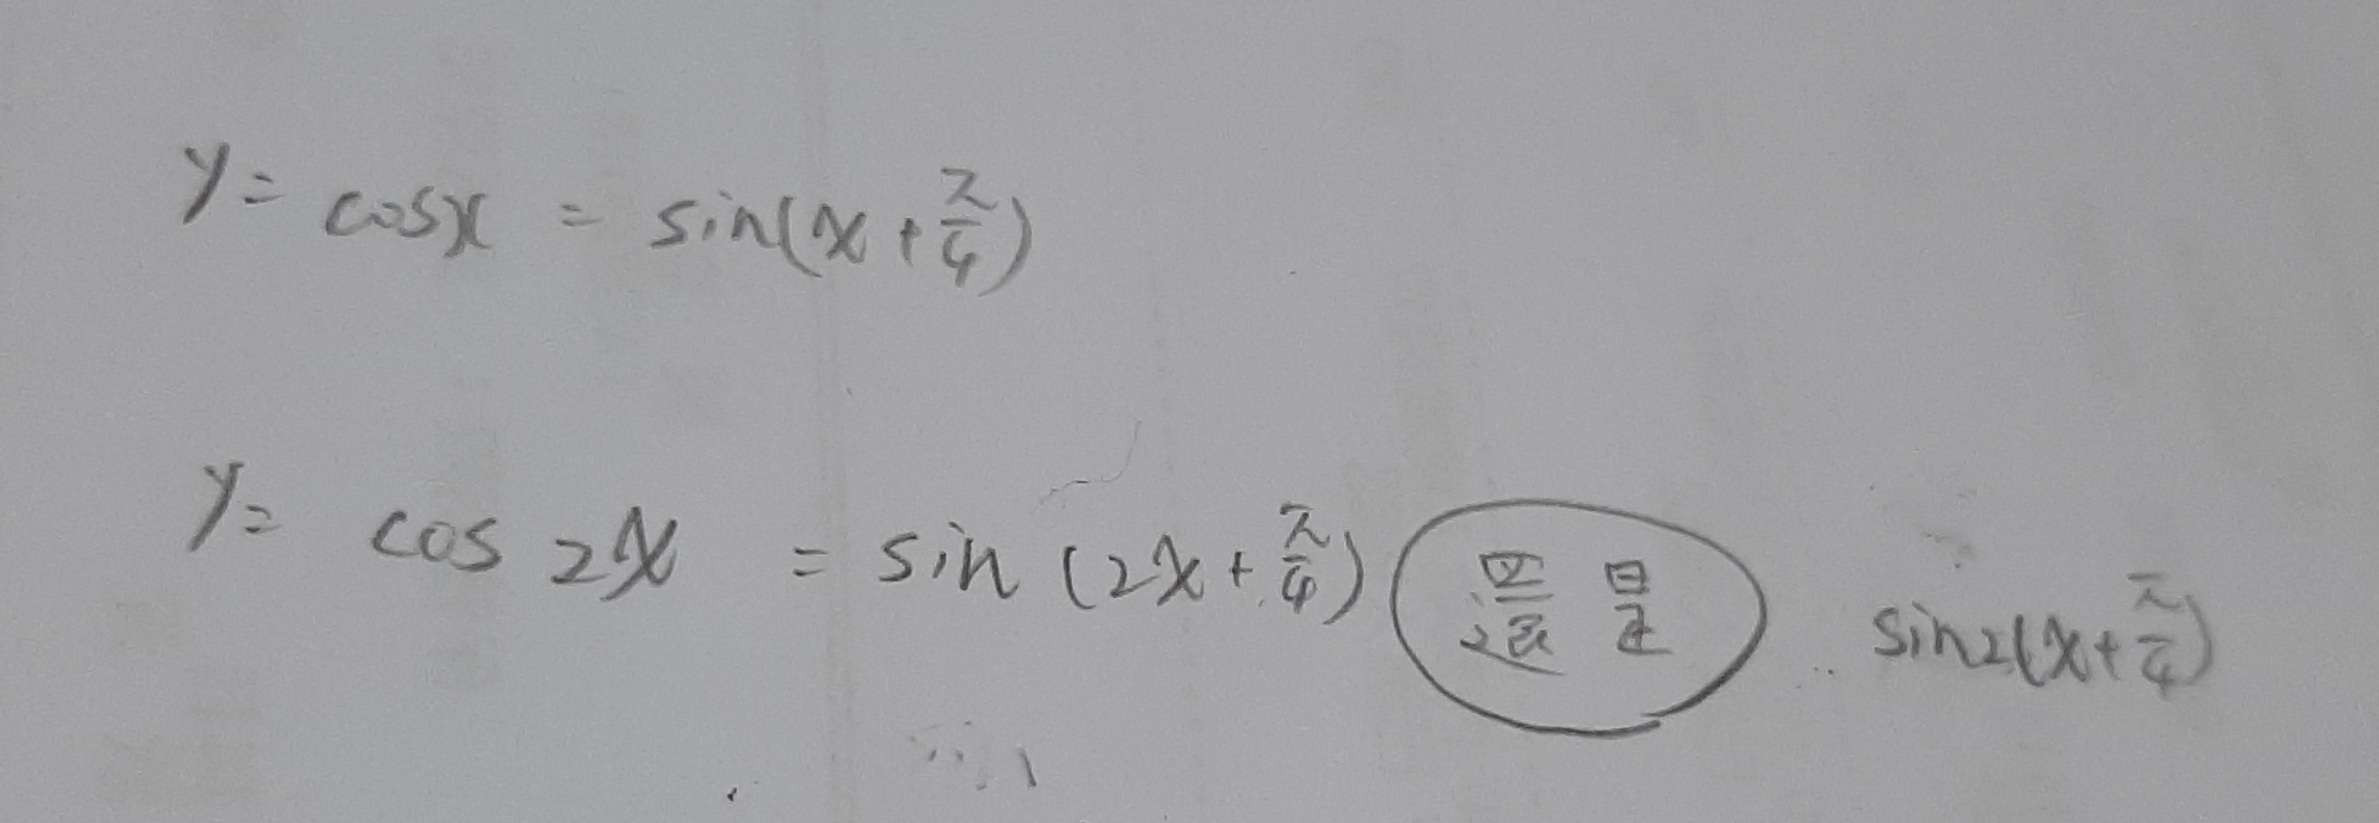 y = cosx = sin(x + π/4)
y = cos 2x = sin (2x + π/4) 還是 sin2(x + π/4)